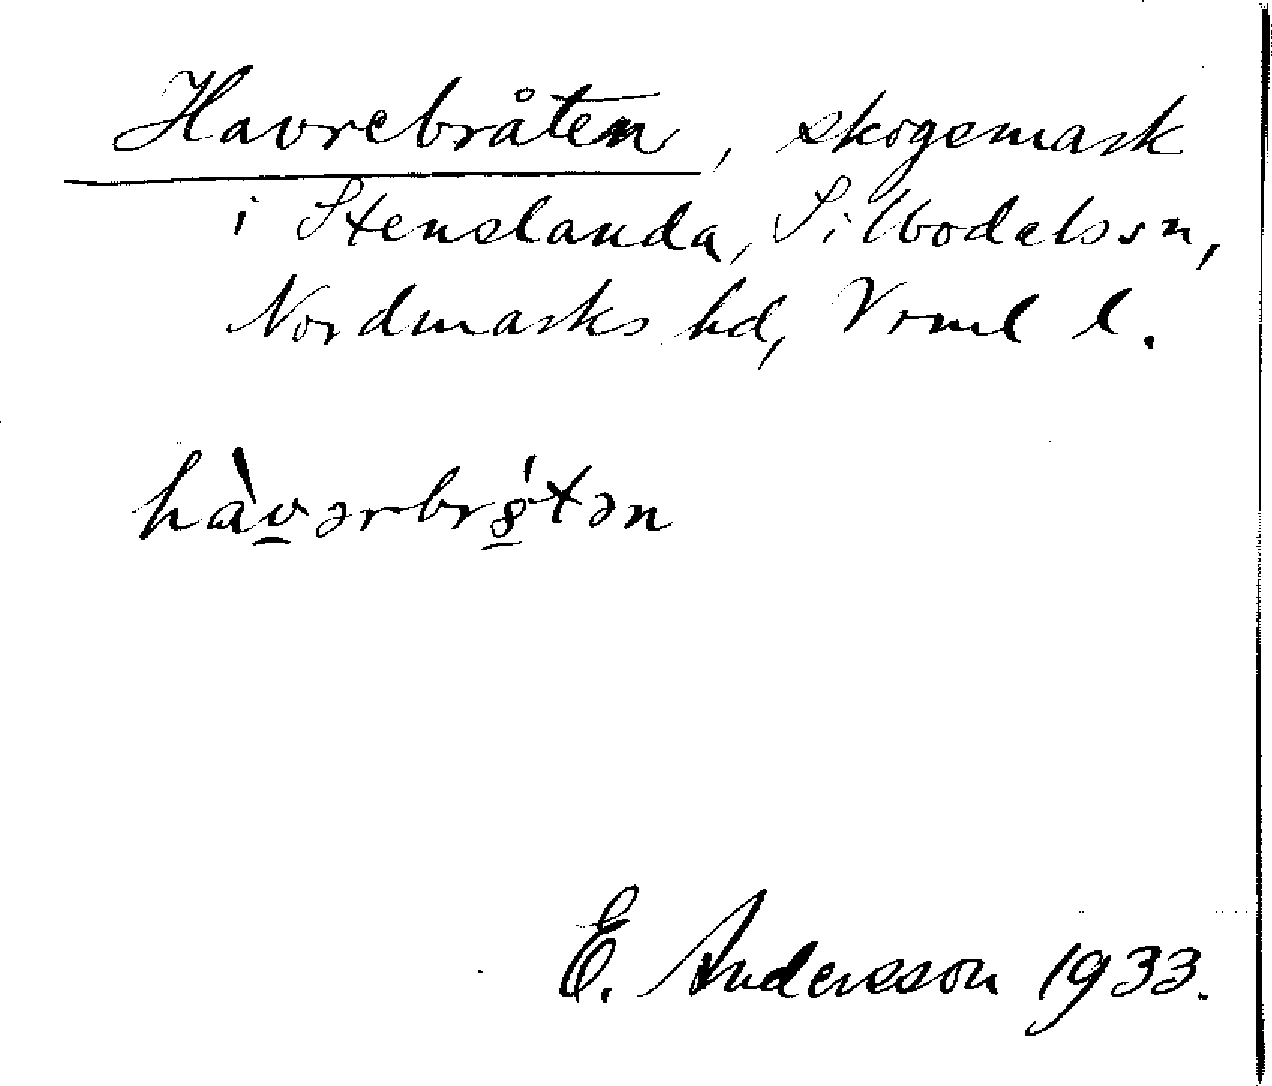 Havrebråten, skogsmark
i Stenslanda, Silbodals sn,
Nordmarks hd, Vrml l.
hàvərbrś̱tən
E. Andersson 1933.